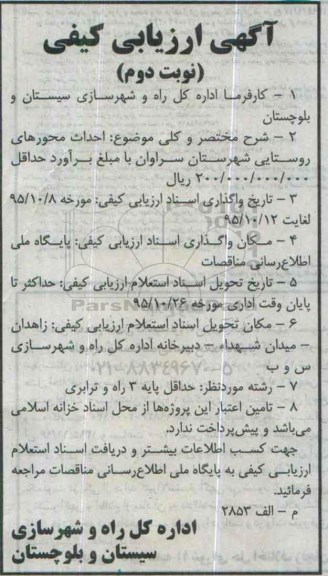 آگهی ارزیابی کیفی
(نوبت دوم)
۱ – کارفرما اداره کل راه و شهرسازی سیستان و
بلوچستان
۲ – شرح مختصر و کلی موضوع: احداث محورهای
روستایی شهرستان سراوان با مبلغ برآورد حداقل
۲۰۰/۰۰۰/۰۰۰/۰۰۰ ریال
۳ – تاریخ واگذاری اسناد ارزیابی کیفی: مورخه ۹۵/۱۰/۸
لغایت ۹۵/۱۰/۱۲
۴ – مکان واگذاری اسناد ارزیابی کیفی: پایگاه ملی
اطلاع‌رسانی مناقصات
۵ – تاریخ تحویل اسناد استعلام ارزیابی کیفی: حداکثر تا
پایان وقت اداری مورخه ۹۵/۱۰/۲۶
۶ – مکان تحویل اسناد استعلام ارزیابی کیفی: زاهدان
– میدان شهداء – دبیرخانه اداره کل راه و شهرسازی
س و ب
۷ – رشته موردنظر: حداقل پایه ۳ راه و ترابری
۸ – تامین اعتبار این پروژه‌ها از محل اسناد خزانه اسلامی
می‌باشد و پیش‌پرداخت ندارد.
جهت کسب اطلاعات بیشتر و دریافت اسناد استعلام
ارزیابی کیفی به پایگاه ملی اطلاع‌رسانی مناقصات مراجعه
فرمائید.
م – الف ۲۸۵۳
اداره کل راه و شهرسازی
سیستان و بلوچستان